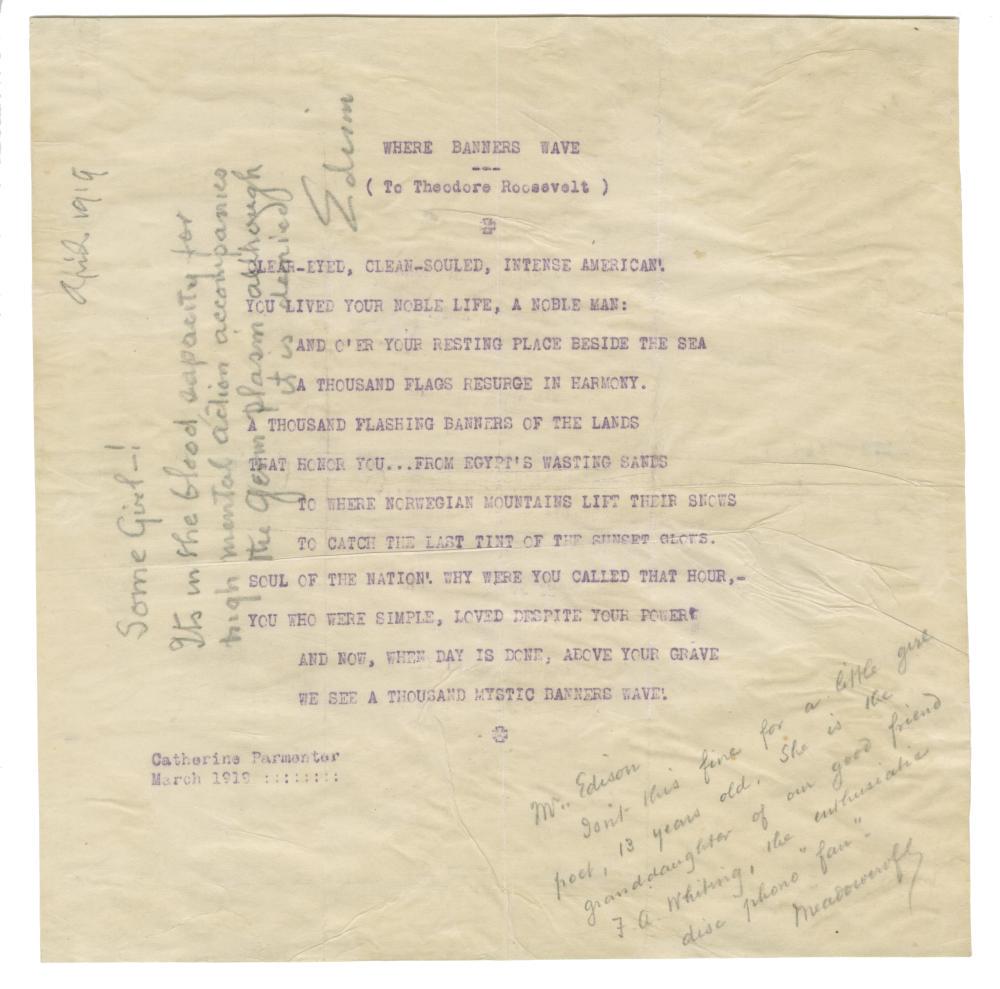 WHERE BANNERS WAVE
---
( To Theodore Roosevelt )
CLEAR-EYED, CLEAN-SOULED, INTENSE AMERICAN!
YOU LIVED YOUR NOBLE LIFE, A NOBLE MAN:
AND O'ER YOUR RESTING PLACE BESIDE THE SEA
A THOUSAND FLAGS RESURGE IN HARMONY.
A THOUSAND FLASHING BANNERS OF THE LANDS
THAT HONOR YOU...FROM EGYPT'S WASTING SANDS
TO WHERE NORWEGIAN MOUNTAINS LIFT THEIR SNOWS
TO CATCH THE LAST TINT OF THE SUNSET GLOWS.
SOUL OF THE NATION! WHY WERE YOU CALLED THAT HOUR,-
YOU WHO WERE SIMPLE, LOVED DESPITE YOUR POWER?
AND NOW, WHEN DAY IS DONE, ABOVE YOUR GRAVE
WE SEE A THOUSAND MYSTIC BANNERS WAVE!
Catherine Parmenter
March 1919 ::::::::
April 1919
Some Girl-!
Its in the blood capacity for
high mental action accompanies
the germ plasm although
it is denied
Edison
Mr. Edison
Isn't this fine for a little girl
poet, 13 years old. She is the
granddaughter of our good friend
F. A. Whiting, the enthusiatic
disc phono "fan"
Meadowcroft